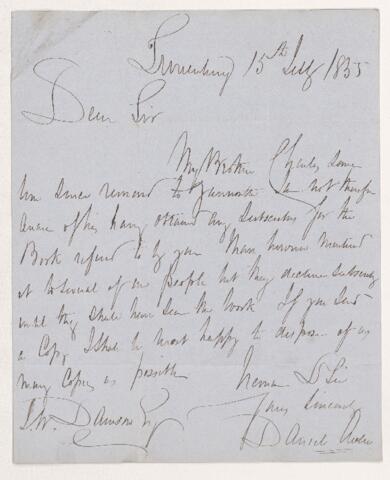 15th July 1855
Dear Sir
My Brother Charles some
time since removed to Yarmouth I am not therefore
aware of his having obtained any Subscribers for the
Book referred to by you I have however mentioned
it to several of our people but they decline subscribing
until they shall have seen the work If you send
a Copy I shall be most happy to dispose of as
many Copies as possible
I remain D Sir
J.W. Dawson Esq Yours Sincerely
Daniel